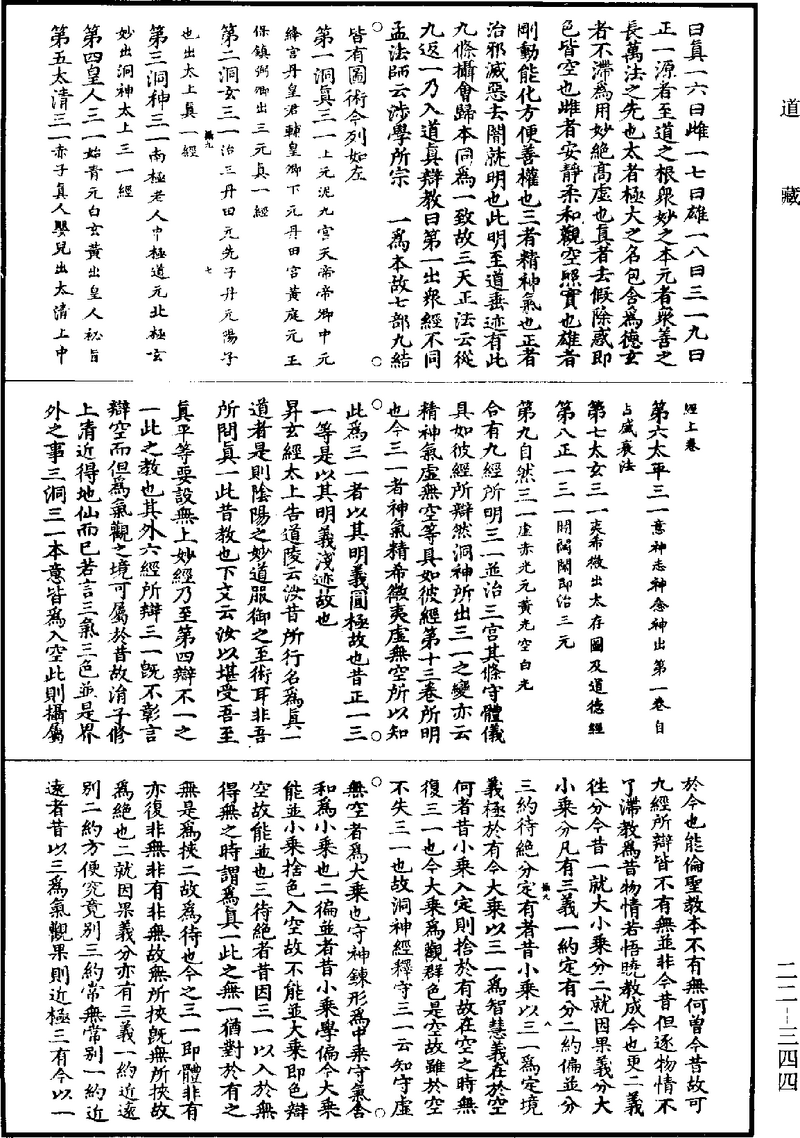 道藏
二二–三四四
曰真一六曰雌一七曰雄一八曰三一九曰
正一源者至道之根衆妙之本元者衆善之
長萬法之先也太者極大之名包含爲德玄
者不滯爲用妙絶高虛也真者去假除惑即
色皆空也雌者安靜柔和觀空照實也雄者
剛動能化方便善權也三者精神氣也正者
治邪滅惡去闇就明也此明至道垂迹有此
九條攝會歸本同爲一致故三天正法云從
九返一乃入道真辯教曰第一出衆經不同
孟法師云涉學所宗 一爲本故七部九結
皆有圖術今列如左
第一洞真三一上元泥九宮天帝帝卿中元
絳宮丹皇君輔皇卿下元丹田宮黃庭元王
保鎮弼卿出三元真一經
第二洞玄三一治三丹田元先子丹元陽子
也出太上真一經
第三洞神三一南極老人中極道元北極玄
妙出洞神太上三一經
第四皇人三一始青元白玄黃出皇人祕旨
第五太清三一赤子真人嬰兒出太清上中
經上卷
第六太平三一意神志神念神出第一卷自
占盛衰法
第七太玄三一夷希微出太存圖及道德經
第八正一三一開闢闔即治三元
第九自然三一虛赤光元黃光空白光
合有九經所明三一並治三宮其條守體儀
具如彼經所辯然洞神所出三一之變亦云
精神氣虛無空等具如彼經第十三卷所明
也今三一者神氣精希微夷虛無空所以知
此爲三一者以其明義圓極故也昔正一三
一等是以其明義淺迹故也
昇玄經太上告道陵云汝昔所行名爲真一
道者是則陰陽之妙道服御之至術耳非吾
所問真一此昔教也下文云汝以堪受吾至
真平等要設無上妙經乃至第四辯不一之
一此之教也其外六經所辯三一旣不彰言
辯空而但爲氣觀之境可屬於昔故涓子修
上清近得地仙而已若言三氣三色並是界
外之事三洞三一本意皆爲入空此則攝屬
於今也能倫聖教本不有無何曾今昔故可
九經所辯皆不有無並非今昔但逐物情不
了滯教爲昔物情若悟曉教成今也更二義
往分今昔一就大小乘分二就因果義分大
小乘分凡有三義一約定有分二約偏並分
三約待絶分定有者昔小乘以三一爲定境
義極於有今大乘以三一爲智慧義在於空
何者昔小乘入定則捨於有故在空之時無
復三一也今大乘爲觀群色是空故雖於空
不失三一也故洞神經釋守三一云知守虛
無空者爲大乘也守神鍊形爲中乘守氣含
和爲小乘也二偏並者昔小乘學偏今大乘
能並小乘捨色入空故不能並大乘即色辯
空故能並也三待絶者昔因三一以入於無
得無之時謂爲真一此之無一猶對於有之
無是爲挾二故爲待也今之三一即體非有
亦復非無非有非無故無所挾旣無所挾故
爲絶也二就因果義分亦有三義一約近遠
別二約方便究竟別三約常無常別一約近
遠者昔以三爲氣觀果則近極三有今以一